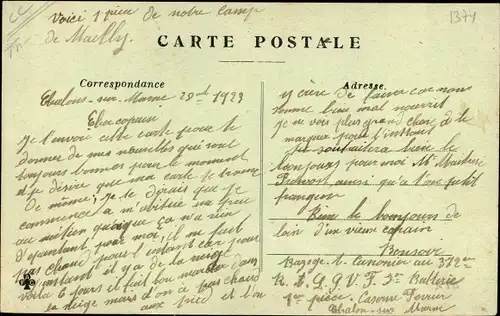 Voici 1 pièce de notre camp
de Mailly.
1374
CARTE POSTALE
Correspondance
Chalons-sur-Marne 1923
Cher copain
Je t'envoie cette carte pour te
donner de mes nouvelles qui sont
toujours bonnes pour le moment
et je désire que ma carte te trouve
de même, Je te dirais que je
commence a m'habituer un peu
au métier quoique ça n'a rien
d'épatant pour moi, il ne fait
pas chaud pour l'instant car pour
il y a de la neige
voila 6 jours et fait bon dans
la neige mais d'on a pas chaud
aux pied et on
Adresse
de car nous
somme bien mal nourrit
Je ne vois plus grand chose de te
marquer pour l'instant
Je souhaitera bien le
bonjours pour moi Mr
ainsi qu'a ton petit
frangin
Bien le bonjours de
loin d'un vieux copain
Bonsoir
Canonier au 372em
R. A. G. V. F. 3e Batterie
1er pièce. Caserne
Chalon-sur Marne